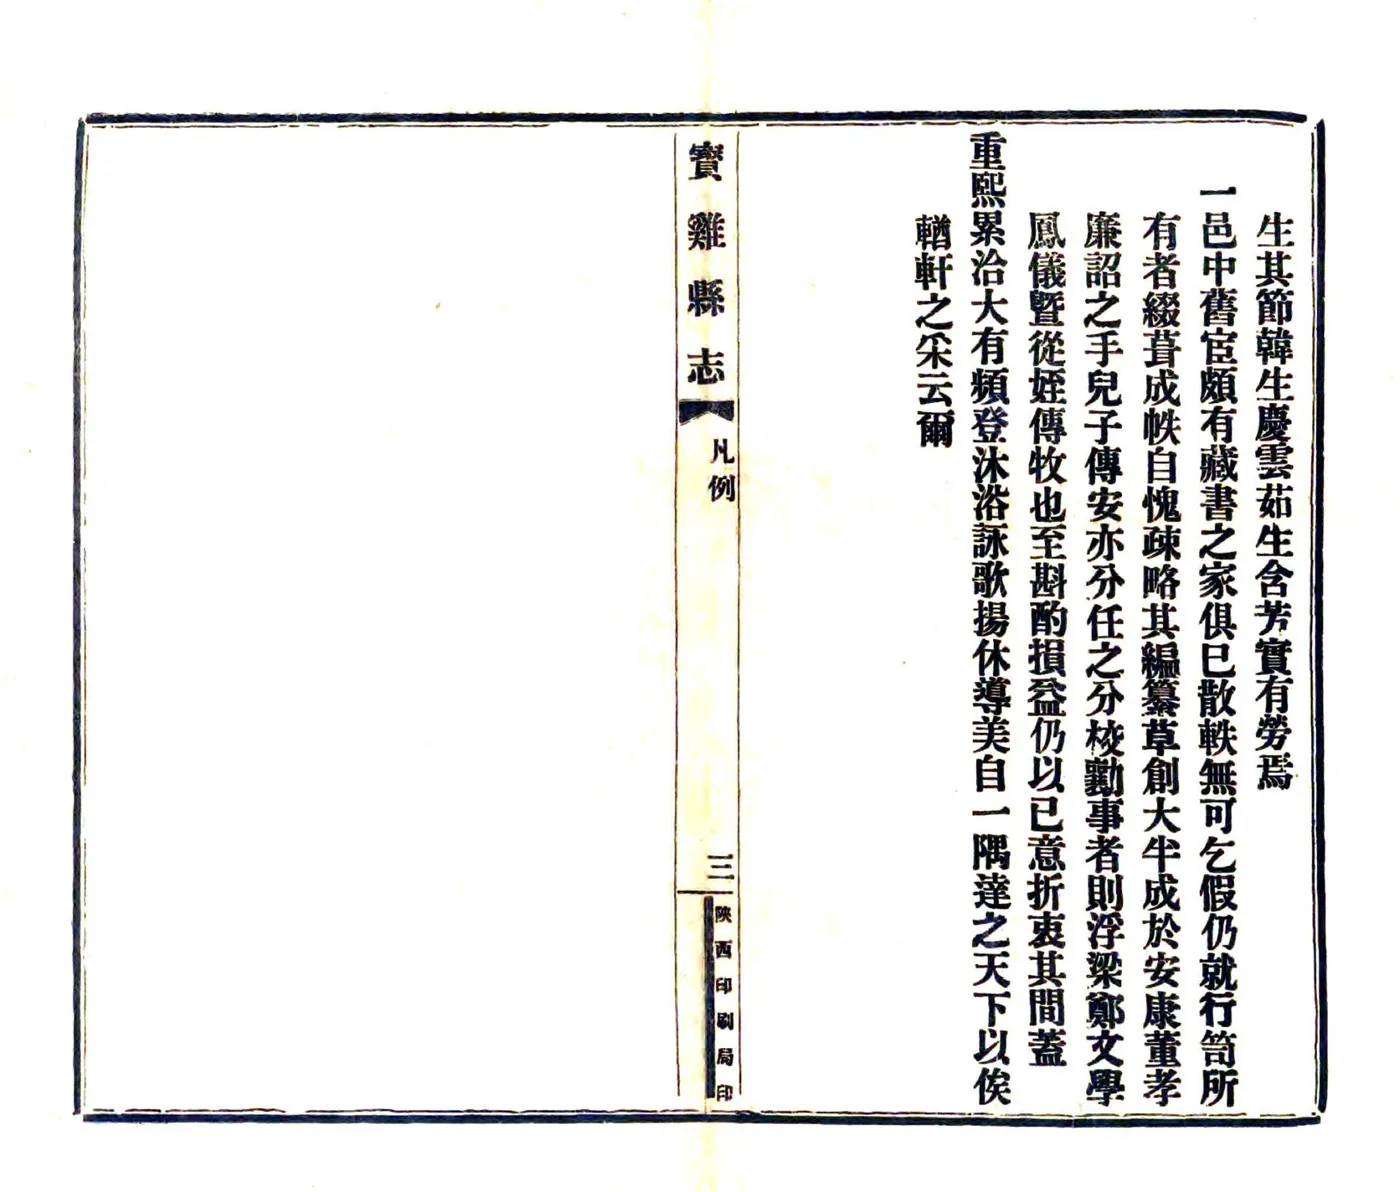 生其節韓生慶雲茹生含芳實有勞焉
一邑中舊宦頗有藏書之家俱已散軼無可乞假仍就行笥所
有者綴葺成帙自愧疎略其編纂草創大半成於安康董孝
廉詔之手兒子傳安亦分任之分校勷事者則浮梁鄭文學
鳳儀暨從姪傳牧也至斟酌損益仍以已意折衷其間蓋
重熙累洽大有頻登沐浴詠歌揚休導美自一隅達之天下以俟
輶軒之采云爾
寳雞縣志
凡例
三
陝西印刷局印